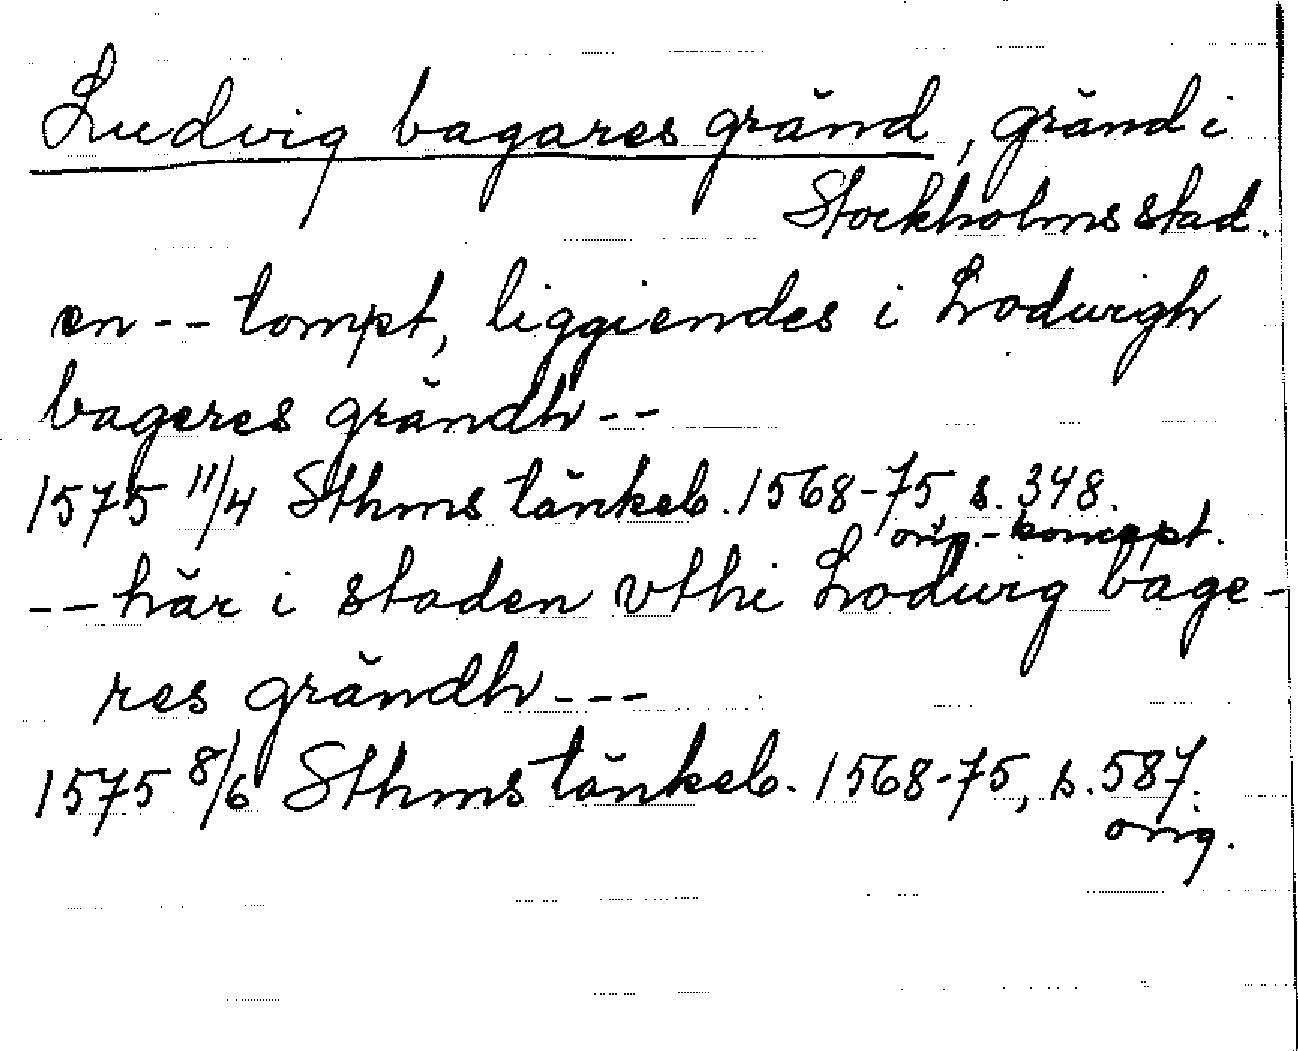 Ludvig bagares gränd, gränd i
Stockholms stad.
en -- tompt, liggiendes i Lodwigh
bageres grändh --
1575 11/4 Sthms tänkeb. 1568-75, s. 348.
orig.-koncept.
-- här i staden vthi Lodwig bage-
res grändh ---
1575 8/6 Sthms tänkeb. 1568-75, s. 587.
orig.